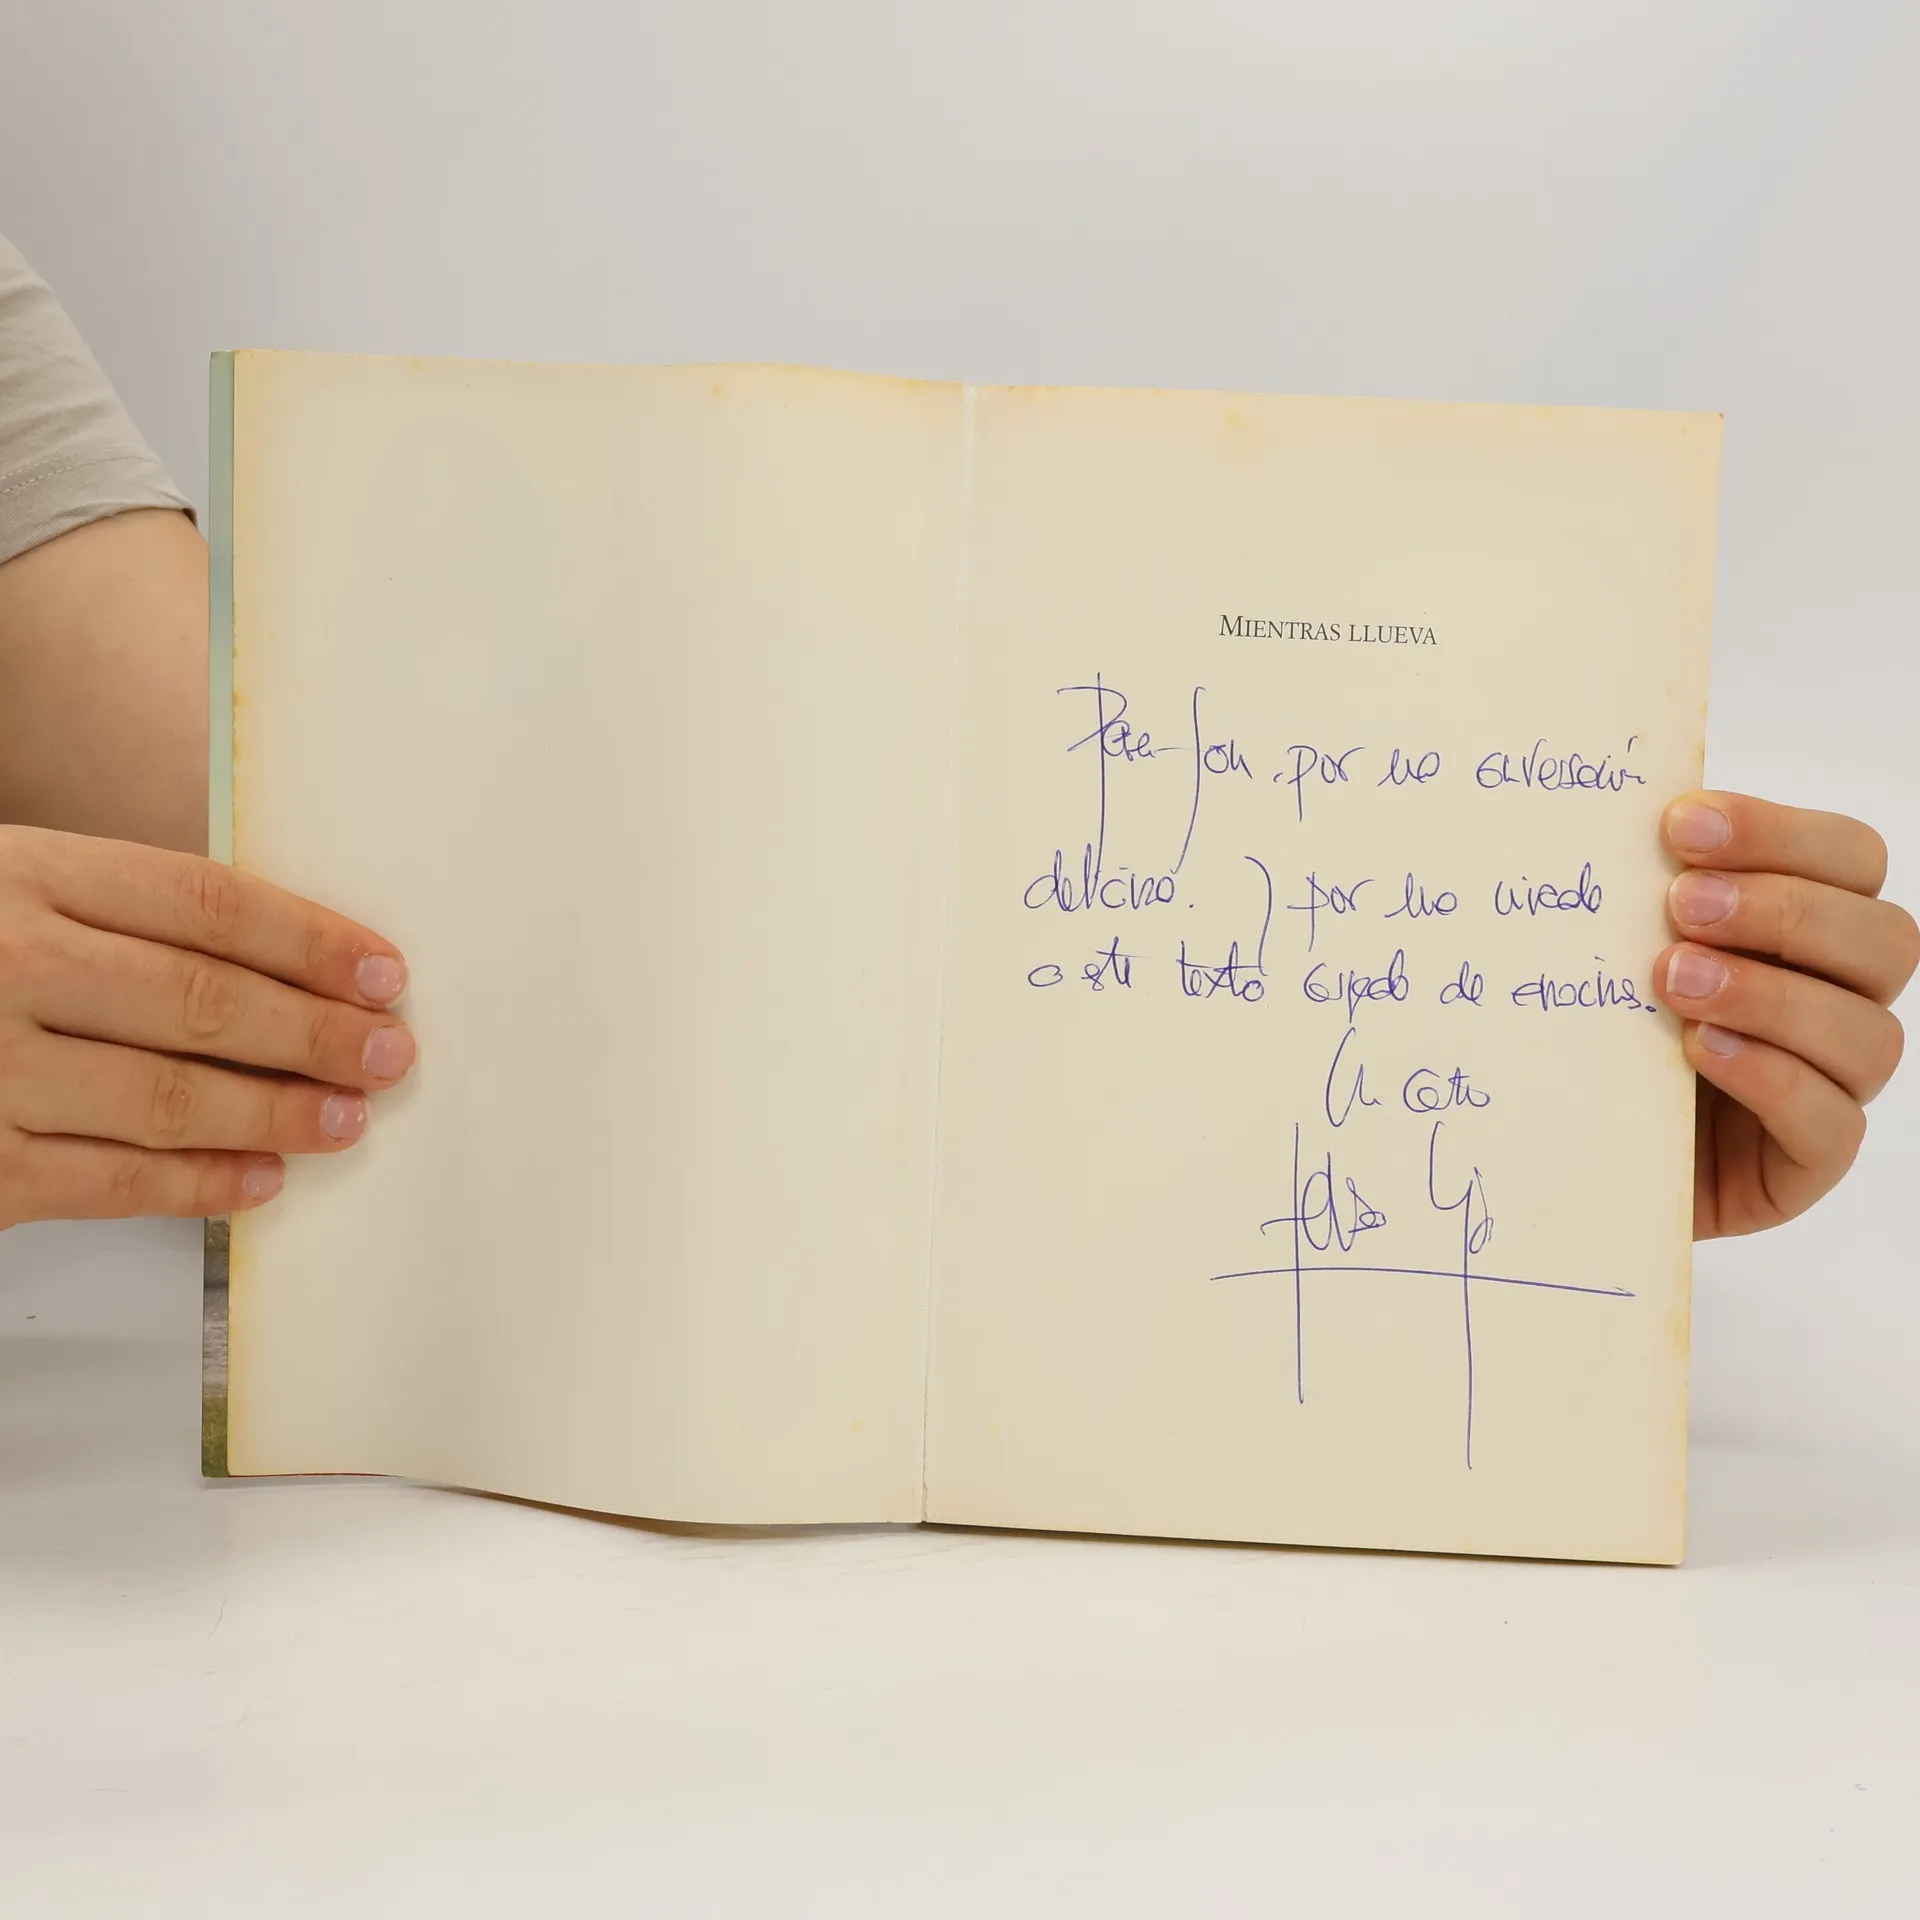 MIENTRAS LLUEVA
Para Jon, por una conversación
deliciosa. Y por una mirada
a este texto cargado de emociones.
Un